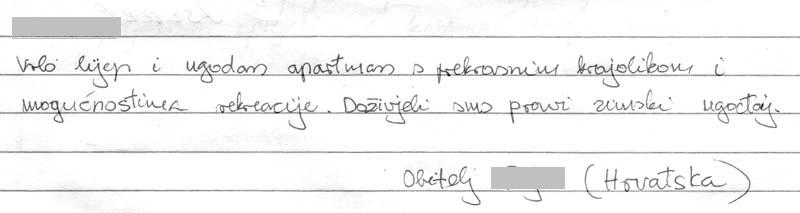 Vrlo lijep i ugodan apartman s prekrasnim krajolikom i
mogućnostima rekreacije. Doživjeli smo pravi zimski ugođaj.
Obitelj (Hrvatska)